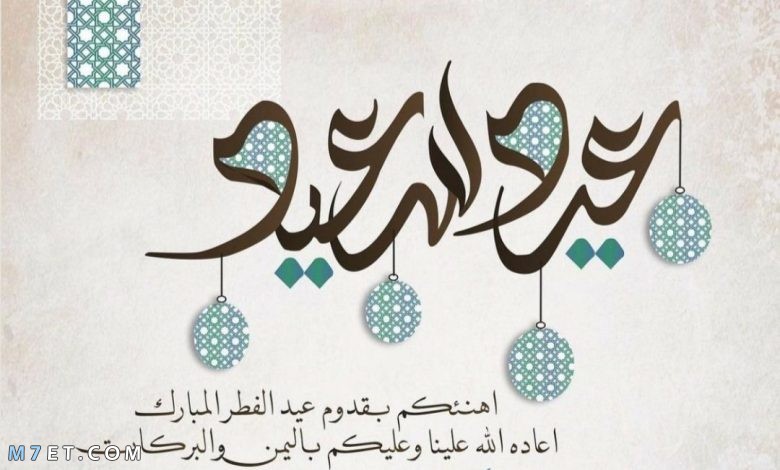 عيد سعيد
اهنئكم بقدوم عيد الفطر المبارك
اعاده الله علينا وعليكم باليمن والبركات
M7ET.COM